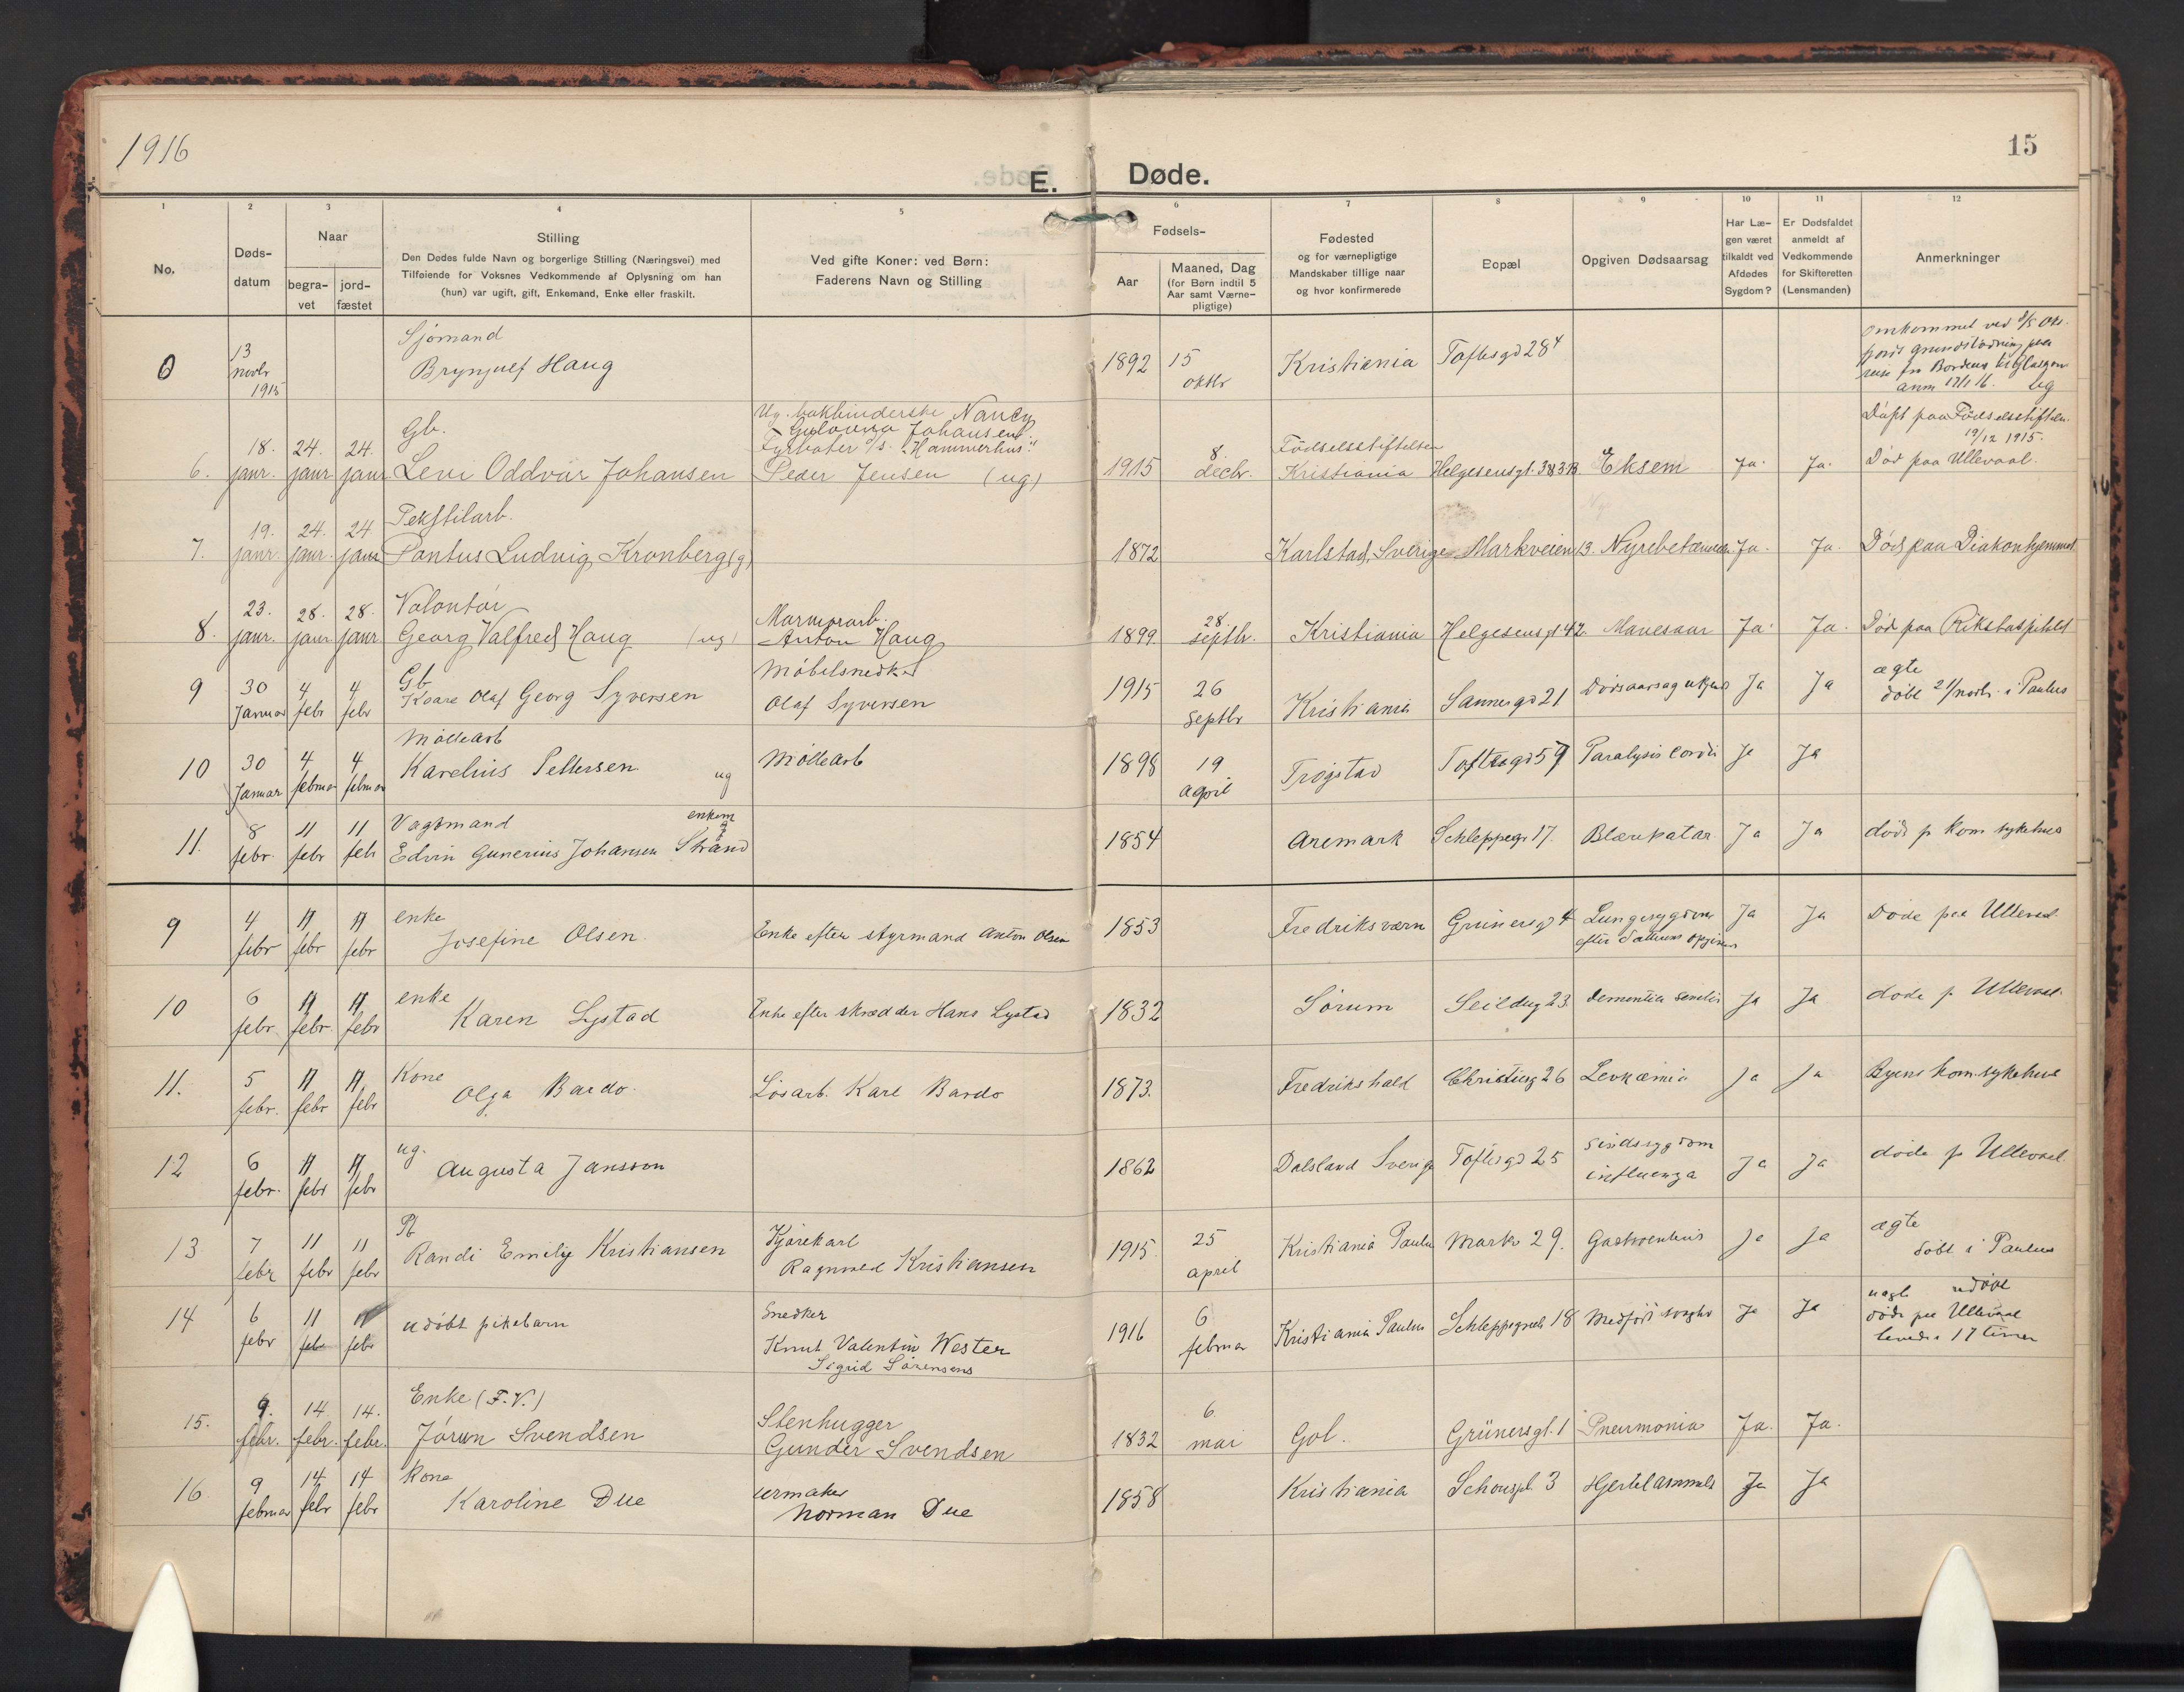 1916
15
E. Døde.
1 2 3 4 5 6 7 8 9 10 11 12
No.
Døds-
datum
Naar
begra-
vet
jord-
fæstet
Stilling
Den Dødes fulde Navn og borgerlige Stilling (Næringsvei) med
Tilføiende for Voksnes Vedkommende af Oplysning om han
(hun) var ugift, gift, Enkemand, Enke eller fraskilt.
Ved gifte Koner: ved Børn:
Faderens Navn og Stilling
Fødsels-
Aar
Maaned, Dag
(for Børn indtil 5
Aar samt Værne-
pligtige)
Fødested
og for værnepligtige
Mandskaber tillige naar
og hvor konfirmerede
Bopæl
Opgiven Dødsaarsag
Har Læ-
gen været
tilkaldt ved
Afdødes
Sygdom?
Er Dødsfaldet
anmeldt af
Vedkommende
for Skifteretten
(Lensmanden)
Anmerkninger
0 13 novbr 1915 Sjømand Brynjulf Haug 1892 15 oktbr Kristiania Toftesgd 28 4 omkommet ved grundstødning paa reise fra Bordeaux til Glasgow anm 17/1 16.
6. 18. janr. 24. janr 24. janr Gb. Levi Oddvar Johansen Ug. bokbinderske Nancy Gulovna Johansen Fyrbøter d/s. "Hammerhus" Peder Jensen (ug) 1915 8. decbr. Fødselsstiftelsen Kristiania Helgesensgt. 38 3.B Eksem Ja. Ja. Døpt paa Fødselsstiftelsen 19/12 1915. Død paa Ullevaal.
7. 19. janr. 24. janr. 24 janr Tekstilarb. Pontus Ludvig Kronberg (g) 1872 Karlstad, Sverige Markveien 13. Nyrebetændelse Ja. Ja. Død paa Diakonhjemmet
8. 23. janr. 28. janr 28. janr Volontør Georg Valfred Haug (ug) Marmorarb. Anton Haug 1899. 28. septbr. Kristiania Helgesensgt 42. Mavesaar Ja. Ja. Død paa Rikshospitalet
9 30 Januar 4 febr 4 febr Gb Kaare Olaf Georg Syversen Møbelsnedker Olaf Syversen 1915 26 septbr Kristiania Sannergd 21 Dødsaarsag ukjendt Ja Ja ægte døbt 21/novbr. i Paulus
10 30 Januar 4 februar 4 februar Møllearb Karelius Pettersen ug Møllearb 1898 19 april Trøgstad Toftesgd 59 Paralysis cordis Ja Ja
11. 8 febr. 11 febr 11 feb Vagtmand Edvin Gunerius Johansen Strand enkem 1854 Aremark Schleppegr 17. Blærekatar. Ja Ja døde p kom sykehus
9 4 febr 11 febr 11 febr enke Josefine Olsen Enke efter styrmand Anton Olsen 1853 Fredriksværn Grünersgd 4 Lungesygdom efter datterens opgivende Ja Ja Døde paa Ullevaal
10 6 febr. 11 febr. 11 febr enke Karen Lystad Enke efter skrædder Hans Lystad 1832 Sørum Seildug 23 dementia senilis Ja Ja døde p Ullevaal
11. 5 febr. 11 febr 11 febr Kone Olga Bardo. Løsarb. Karl Bardo 1873. Fredrikshald Christiesg 26 Levkæmia Ja Ja Byens kom. sykehus
12 6 febr. 11 febr 11 febr ug. Augusta Jansson 1862 Dalsland Sverige Toftesgd 25 sindssygdom influenza Ja Ja døde p Ullevaal.
13 7 febr 11 febr 11 febr Pb Randi Emilie Kristiansen Kjørekarl Ragnvald Kristiansen 1915 25 april Kristiania Paulus Markv 29. Gastroenterit Ja Ja ægte døbt i Paulus
14 6 febr 11 feb 11 febr udøbt pikebarn Snedker Knut Valentin Wester Sigrid Sørensens 1916 6 februar Kristiania Paulus Schleppegrels 18 Medfødt svaghet Ja Ja uægte udøbt døde paa Ullevaal levede 17 timer
15. 9. febr. 14 febr. 14. febr. Enke (F.V.) Jørun Svendsen Stenhugger Gunder Svendsen 1832 6. mai Gol. Grünersgt. 1 Pneumonia Ja. Ja.
16. 9 februar 14 febr 14 febr Kone Karoline Due urmaker Norman Due 1858 Kristiania Schouspl. 3 Hjertelammelse Ja Ja